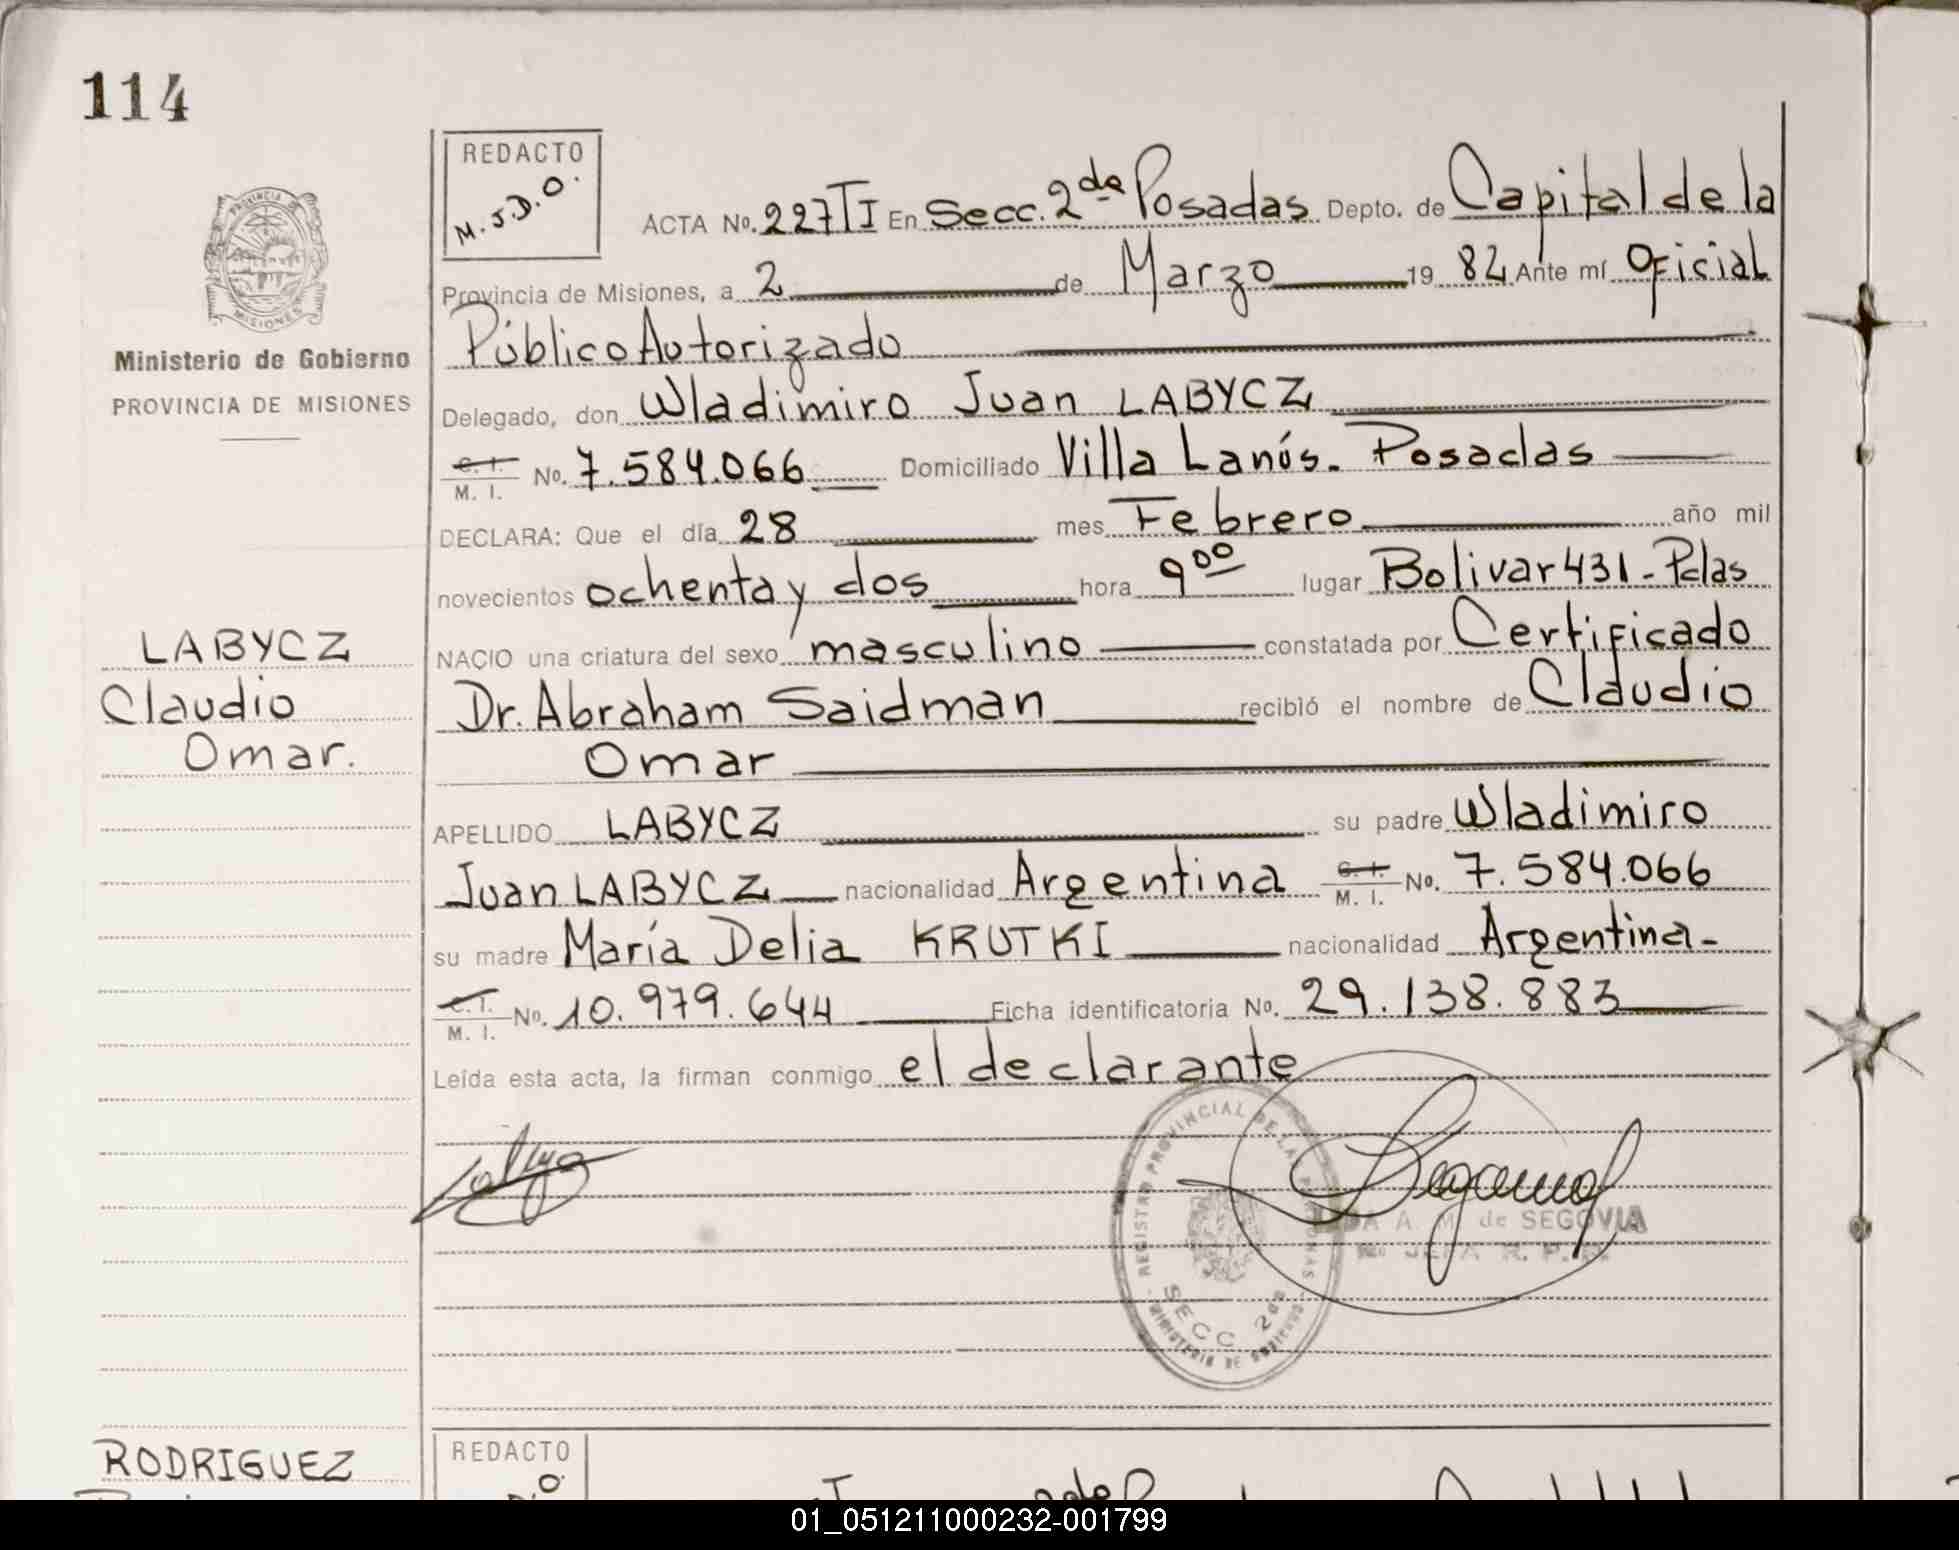 114
REDACTO
M.J.D.O.
PROVINCIA DE
MISIONES
Ministerio de Gobierno
PROVINCIA DE MISIONES
ACTA No. 227 TI En Secc. 2da Posadas Depto. de Capital de la
Provincia de Misiones, a 2 de Marzo 19 82 Ante mí Oficial
Público Autorizado
Delegado, don Wladimiro Juan LABYCZ
C. I. M. I. No. 7.584.066 Domiciliado Villa Lanús. Posadas
DECLARA: Que el día 28 mes Febrero año mil
novecientos ochenta y dos hora 9 00 lugar Bolivar 431 - Pdas
NACIO una criatura del sexo masculino constatada por Certificado
Dr. Abraham Saidman recibió el nombre de Claudio
Omar
APELLIDO LABYCZ su padre Wladimiro
Juan LABYCZ nacionalidad Argentina C. I. M. I. No. 7.584.066
su madre María Delia KRUTKI nacionalidad Argentina -
C. I. M. I. No. 10.979.644 Ficha identificatoria No. 29.138.883
Leída esta acta, la firman conmigo el declarante
LABYCZ
Claudio
Omar.
REGISTRO PROVINCIAL DE LAS PERSONAS
SECC 2da
MINISTERIO DE GOBIERNO
A. M. de SEGOVIA
JEFA R. P.
RODRIGUEZ
REDACTO
01_051211000232-001799